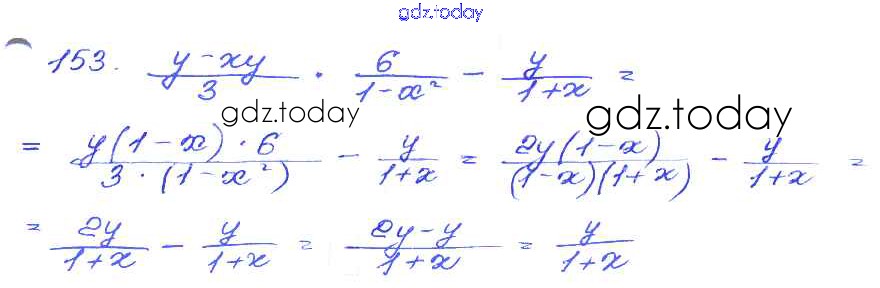 gdz.today
153. (y-xy)/3 · 6/(1-x²) - y/(1+x) =
gdz.today gdz.today
= (y(1-x)·6)/(3·(1-x²)) - y/(1+x) = (2y(1-x))/((1-x)(1+x)) - y/(1+x) =
= 2y/(1+x) - y/(1+x) = (2y-y)/(1+x) = y/(1+x)